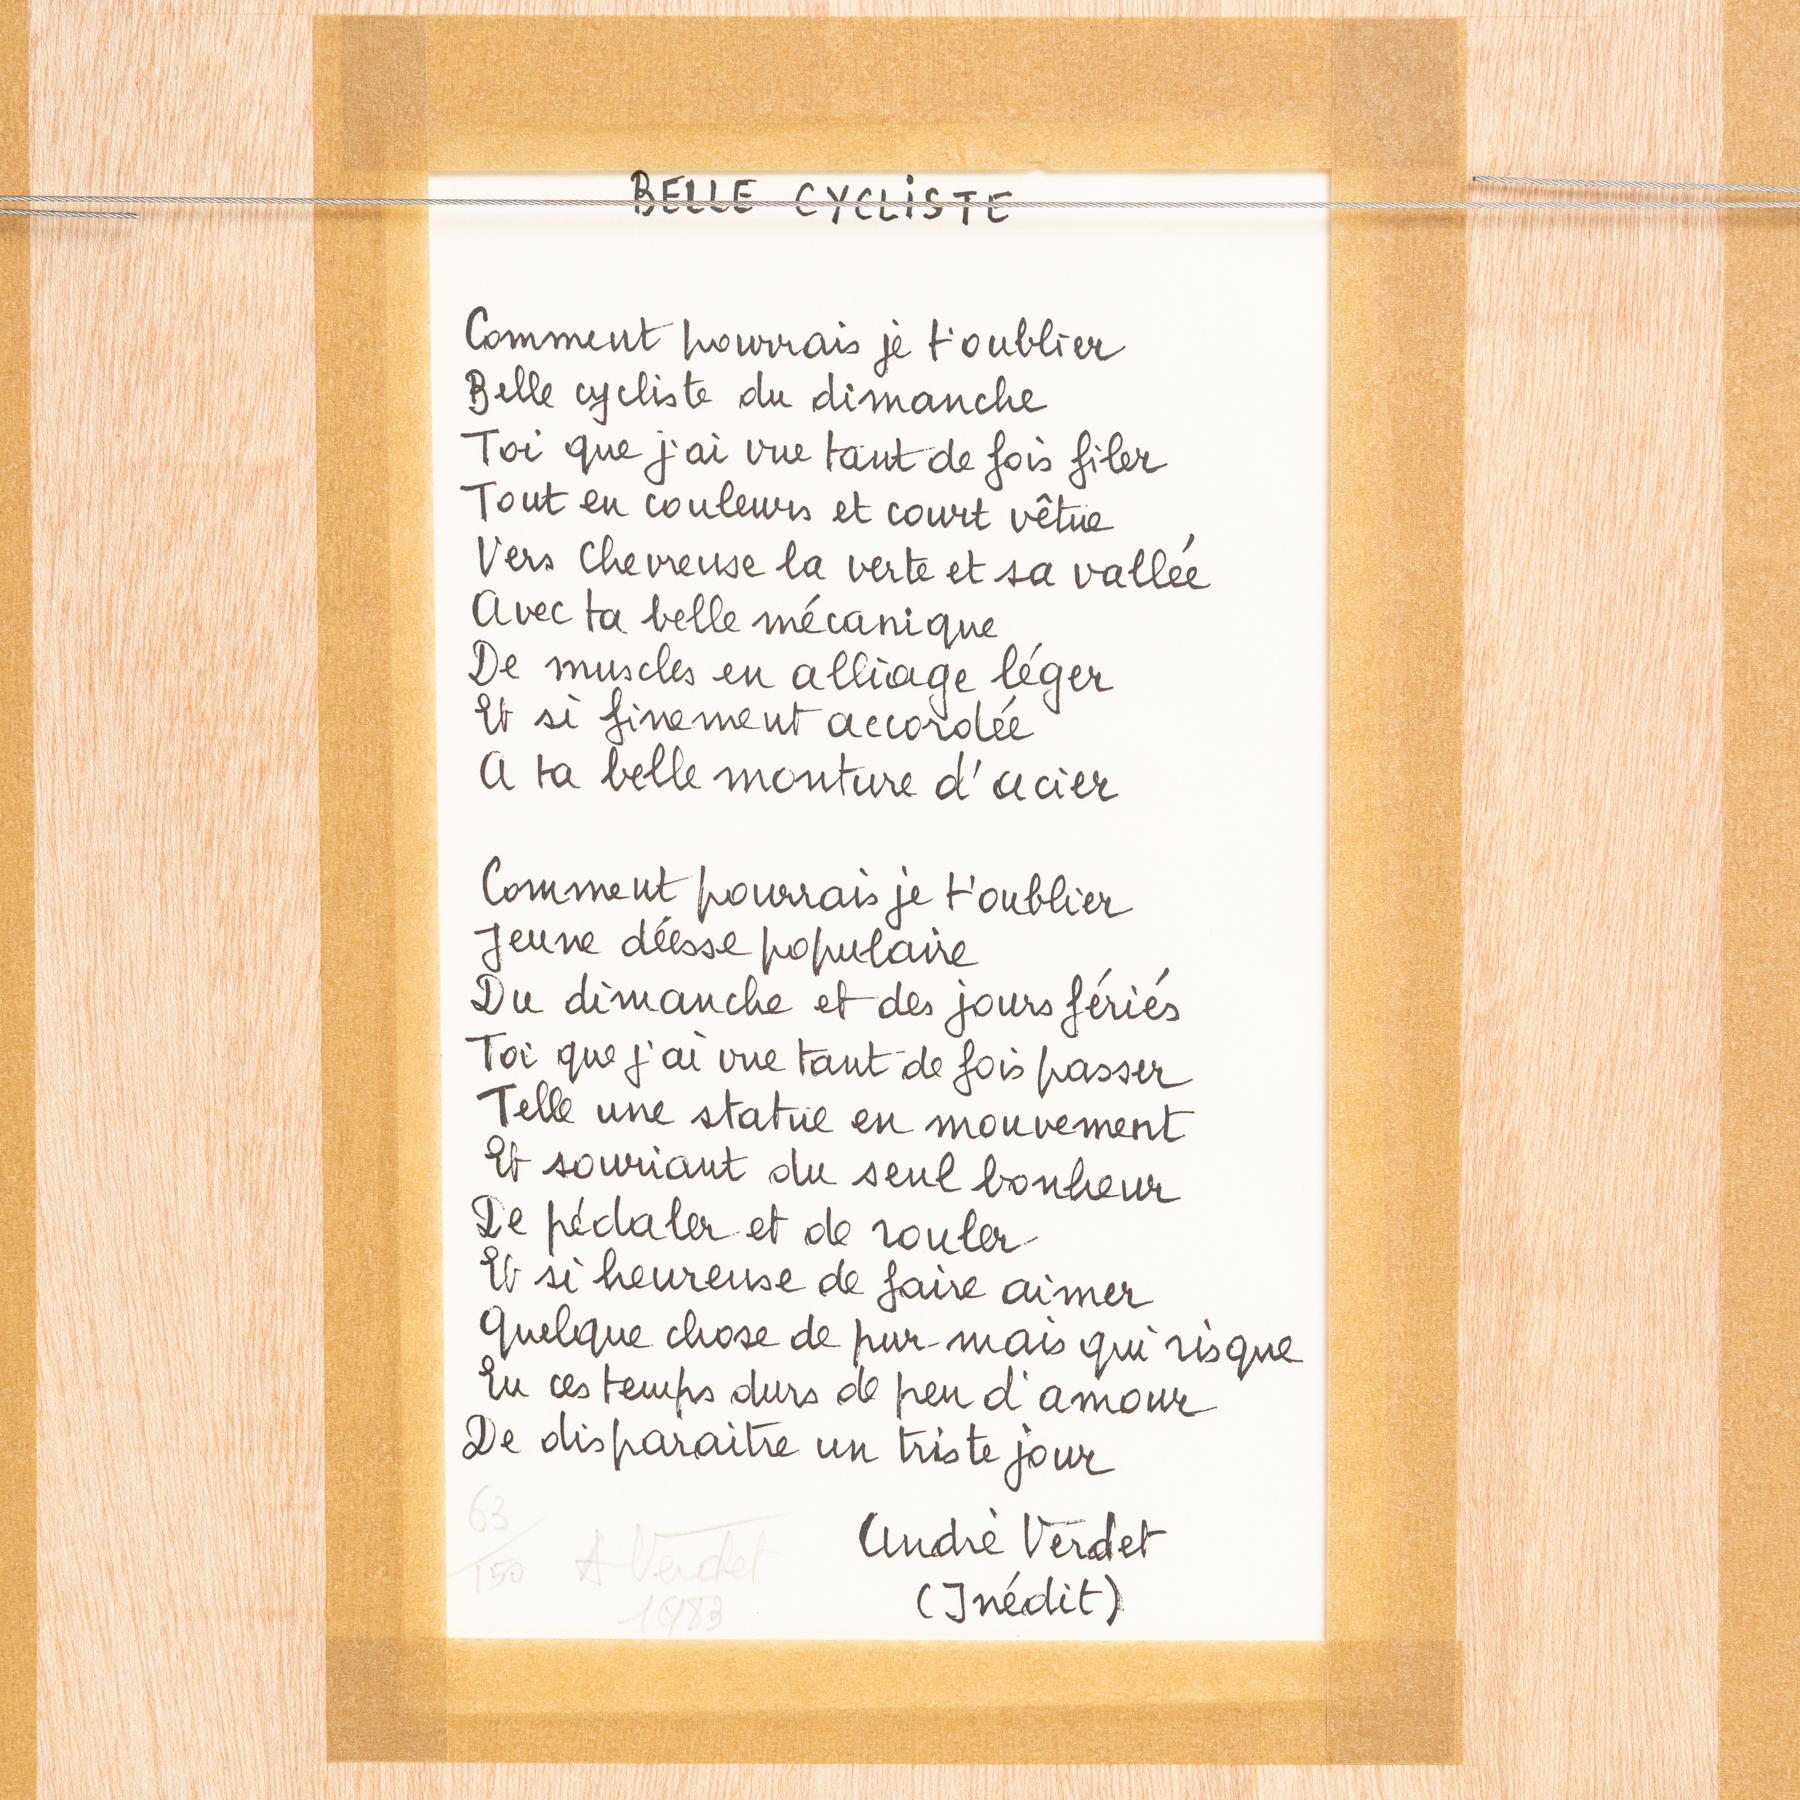 BELLE CYCLISTE
Comment pourrais je t'oublier
Belle cycliste du dimanche
Toi que j'ai vue tant de fois filer
Tout en couleurs et court vêtue
Vers Chevreuse la verte et sa vallée
Avec ta belle mécanique
De muscles en alliage léger
Et si finement accordée
A ta belle monture d'acier
Comment pourrais je t'oublier
Jeune déesse populaire
Du dimanche et des jours fériés
Toi que j'ai vue tant de fois passer
Telle une statue en mouvement
Et souriant du seul bonheur
De pédaler et de rouler
Et si heureuse de faire aimer
Quelque chose de pur mais qui risque
En ces temps durs de peu d'amour
De disparaitre un triste jour
63/150 A Verdet 1983
André Verdet
(Inédit)